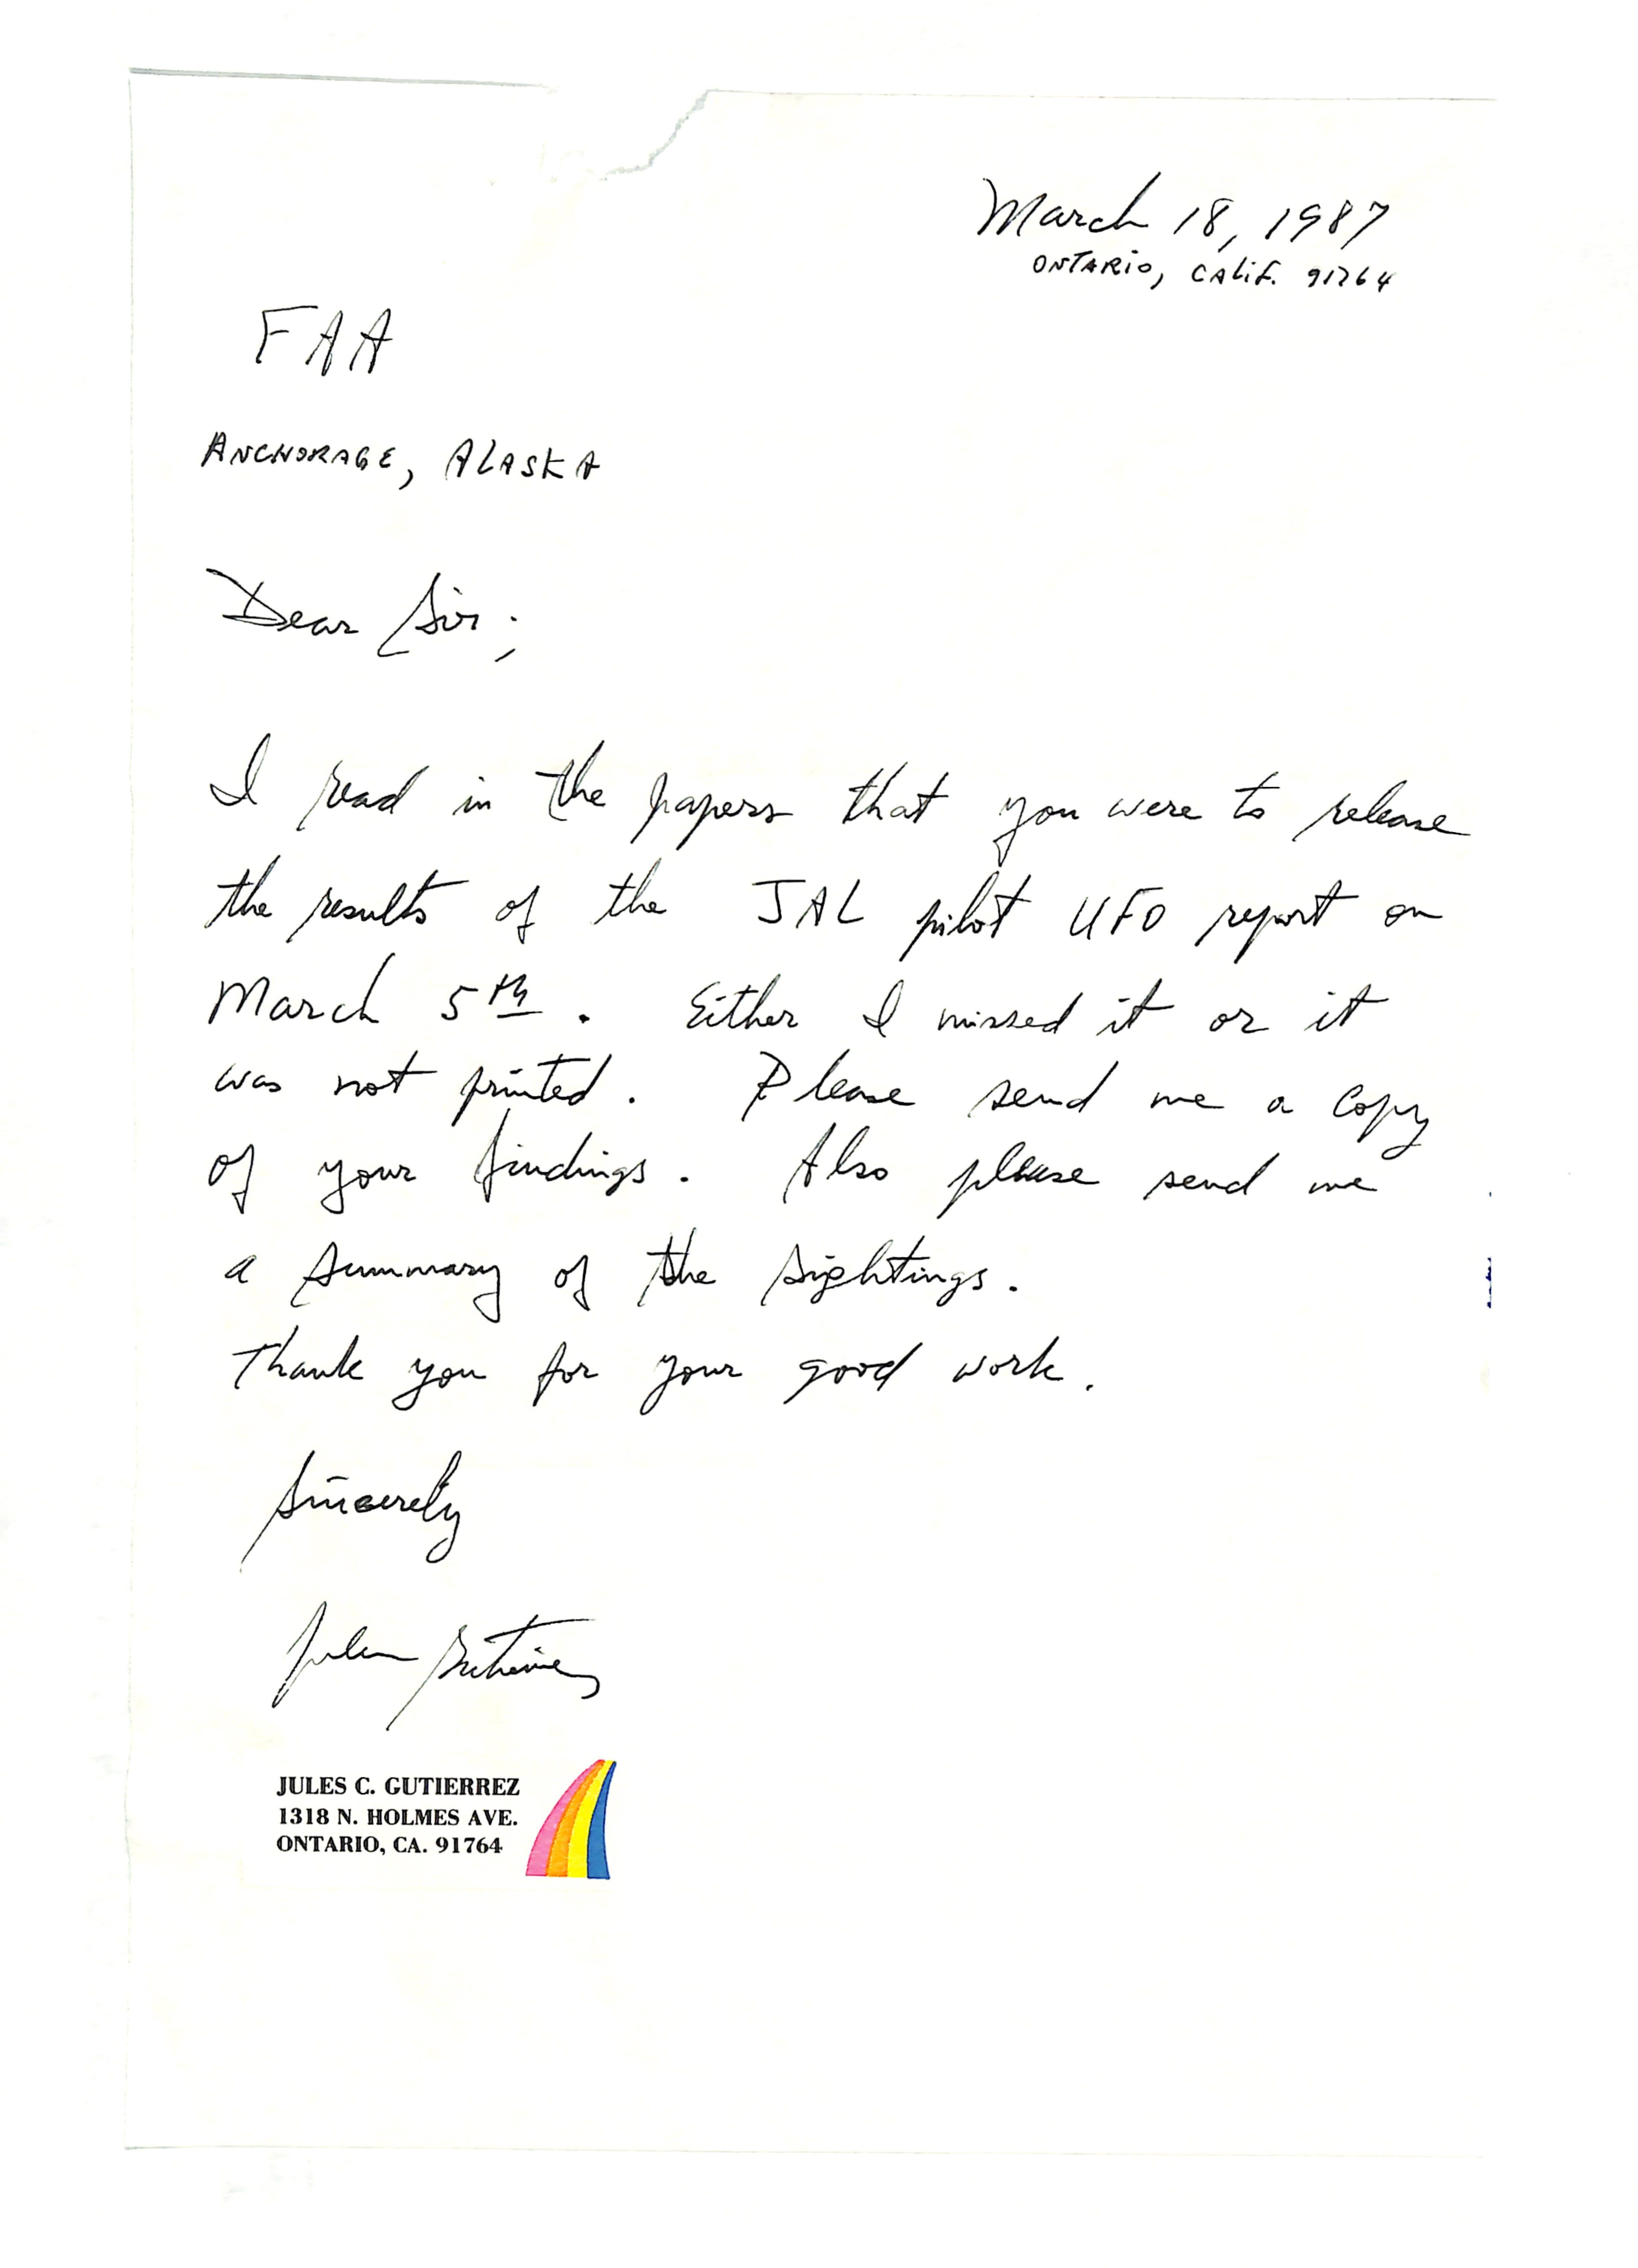 March 18, 1987
ONTARIO, CALIF. 91764
FAA
ANCHORAGE, ALASKA
Dear Sir;
I read in the papers that you were to release
the results of the JAL pilot UFO report on
March 5th. Either I missed it or it
was not printed. Please send me a copy
of your findings. Also please send me
a summary of the sightings.
Thank you for your good work.
Sincerely
Jules Gutierrez
JULES C. GUTIERREZ
1318 N. HOLMES AVE.
ONTARIO, CA. 91764